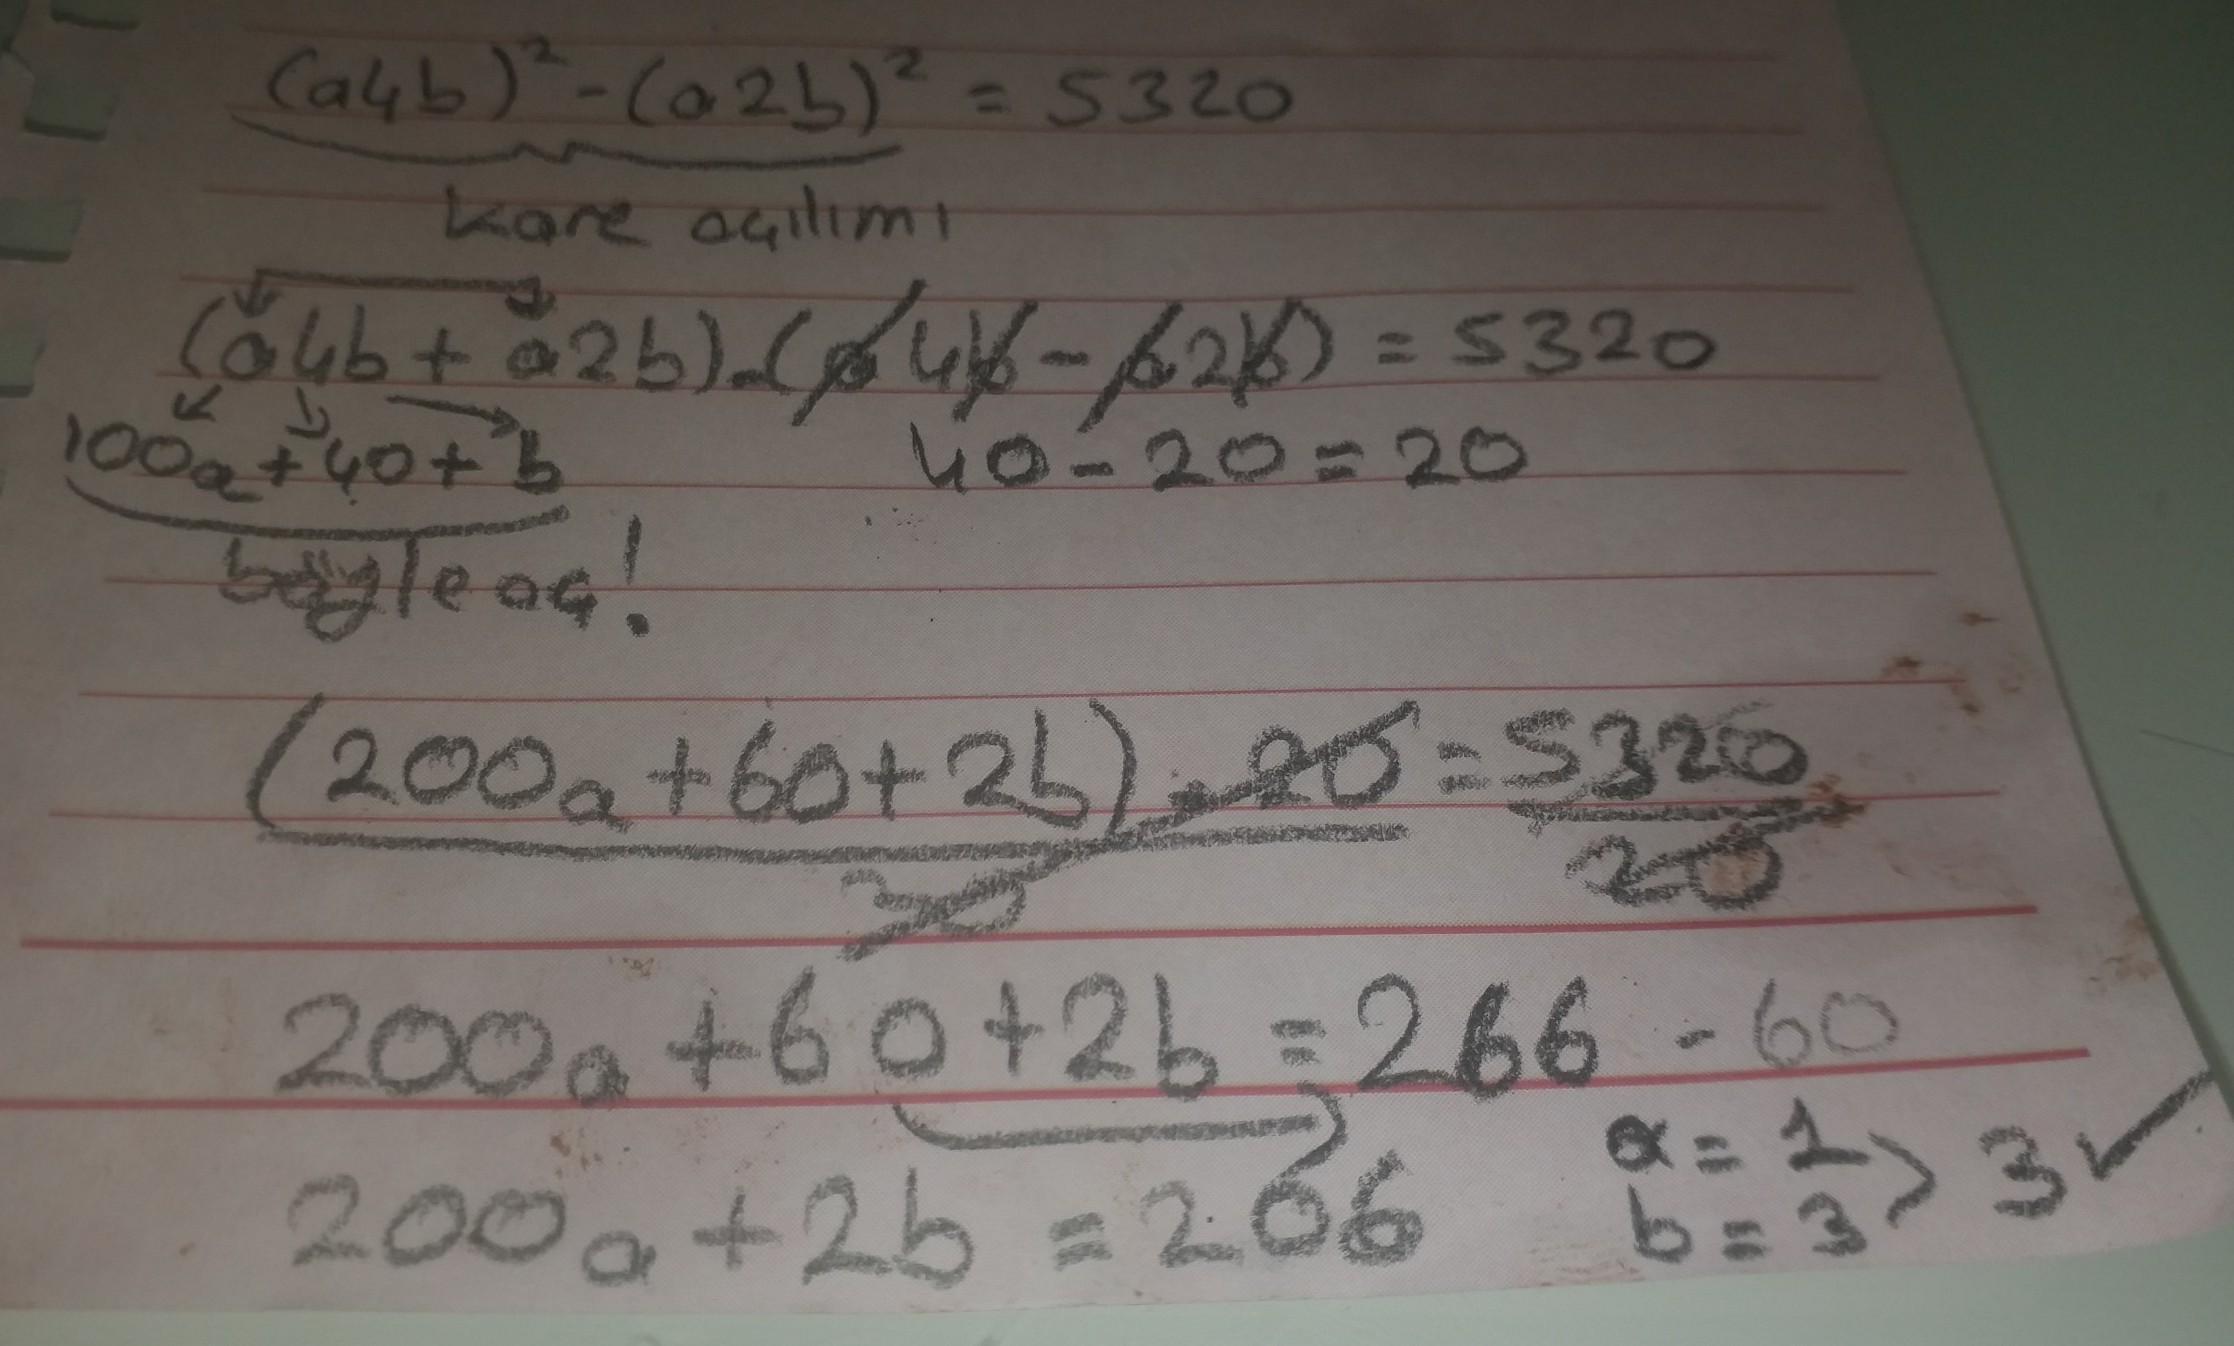 (a4b)² - (a2b)² = 5320
kare açılımı
(a4b + a2b) . (a4b - a2b) = 5320
100a + 40 + b
40 - 20 = 20
böyle aç!
(200a + 60 + 2b) . 20 = 5320
20 20
200a + 60 + 2b = 266 - 60
a = 1
b = 3 > 3 ✓
200a + 2b = 206